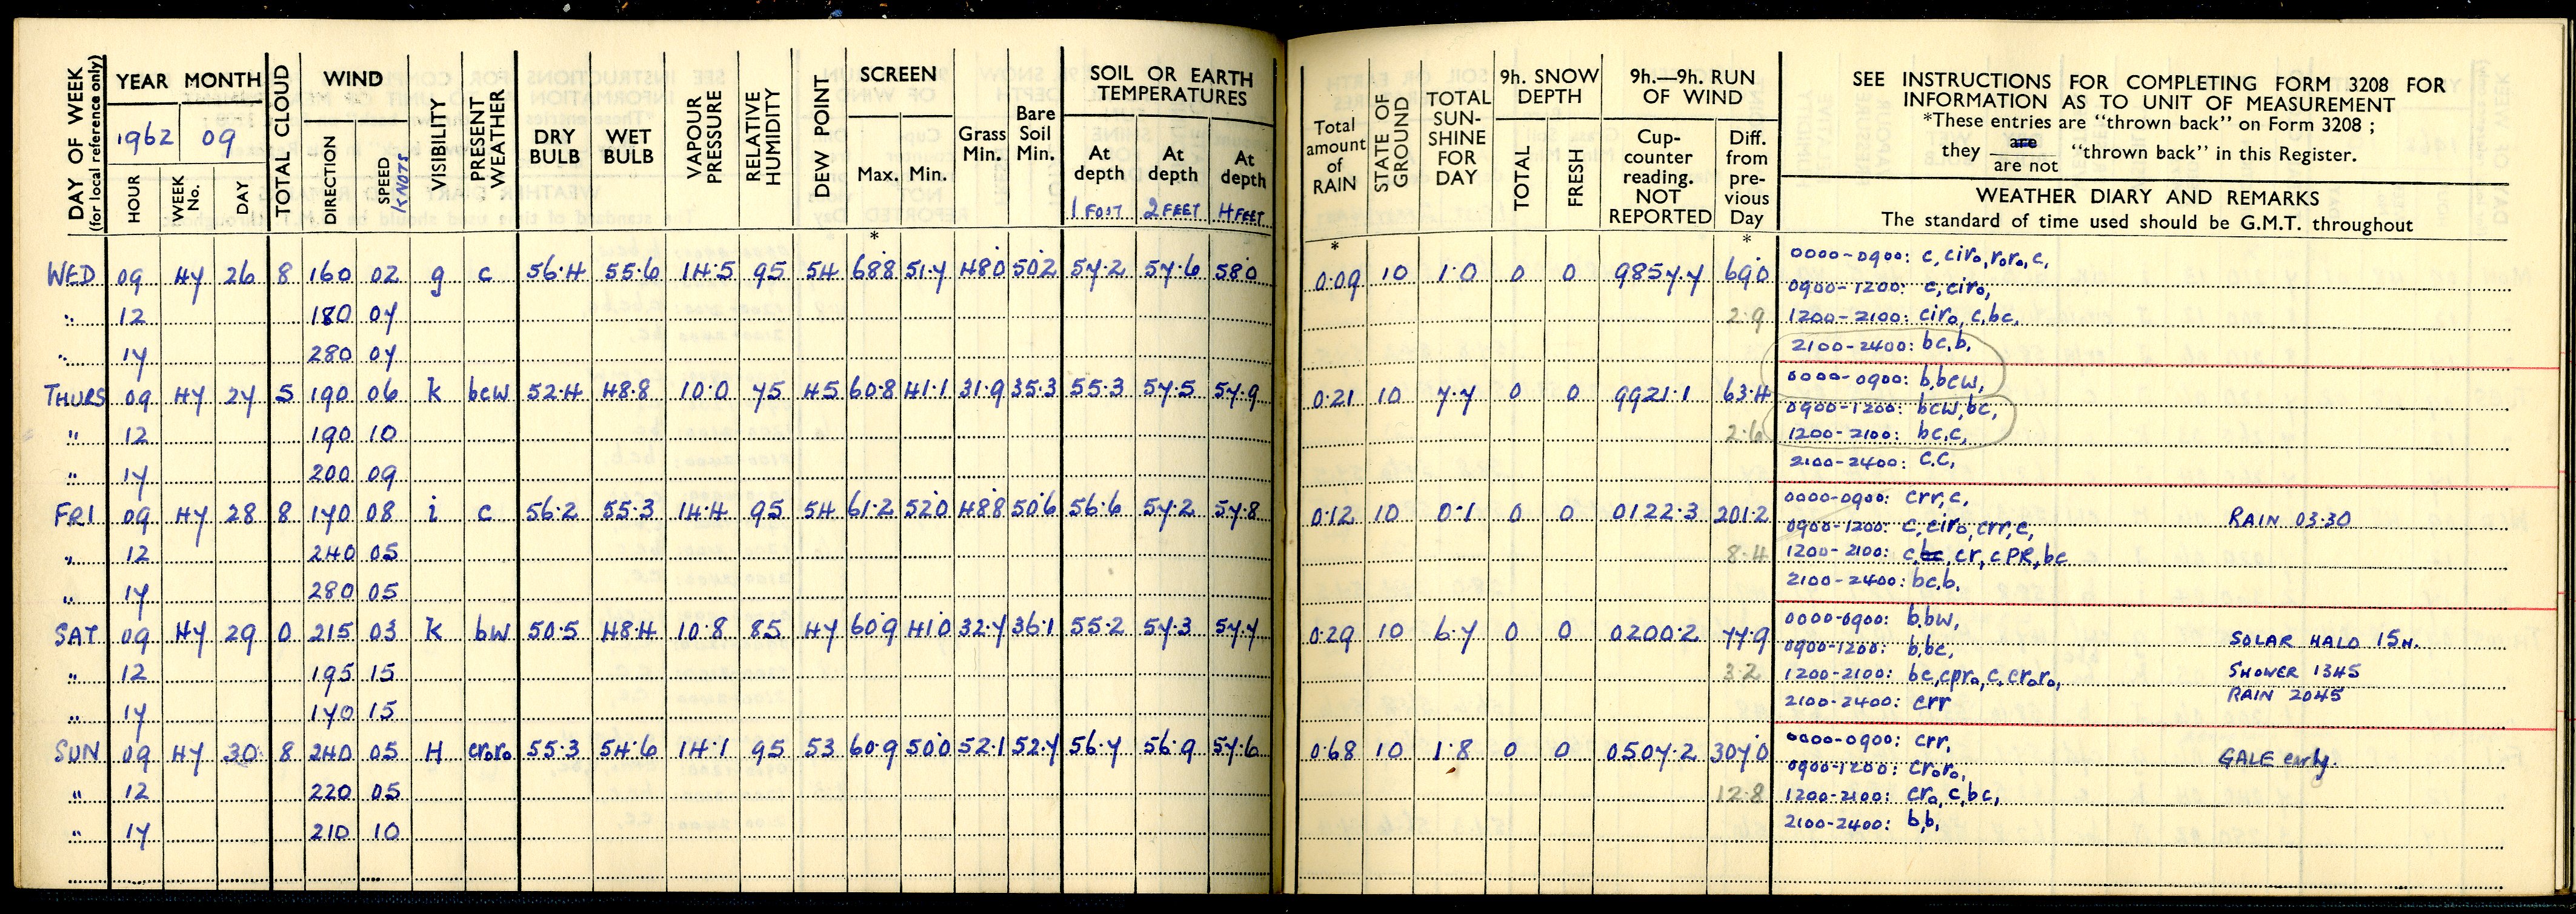 DAY OF WEEK
(for local reference only)
YEAR MONTH
1962 09
HOUR WEEK No. DAY
TOTAL CLOUD
WIND
DIRECTION SPEED KNOTS
VISIBILITY
PRESENT WEATHER
DRY BULB
WET BULB
VAPOUR PRESSURE
RELATIVE HUMIDITY
DEW POINT
SCREEN
Max. Min.
*
Grass Min.
Bare Soil Min.
SOIL OR EARTH TEMPERATURES
At depth 1 FOOT
At depth 2 FEET
At depth 4 FEET
Total amount of RAIN
*
STATE OF GROUND
TOTAL SUN-SHINE FOR DAY
9h. SNOW DEPTH
TOTAL FRESH
9h.—9h. RUN OF WIND
Cup-counter reading. NOT REPORTED
Diff. from pre-vious Day
*
SEE INSTRUCTIONS FOR COMPLETING FORM 3208 FOR
INFORMATION AS TO UNIT OF MEASUREMENT
*These entries are "thrown back" on Form 3208 ;
they are / are not "thrown back" in this Register.
WEATHER DIARY AND REMARKS
The standard of time used should be G.M.T. throughout
WED 09 47 26 8 160 02 g c 56.4 55.6 14.5 95 54 68.8 51.7 48.0 50.2 57.2 57.6 58.0 0.09 10 1.0 0 0 9857.7 69.0 0000-0900: c, ciro, roro, c,
0900-1200: c, ciro,
" 12 180 07 2.9 1200-2100: ciro, c, bc,
" 17 280 07 2100-2400: bc, b,
THURS 09 47 27 5 190 06 k bcw 52.4 48.8 10.0 75 45 60.8 41.1 31.9 35.3 55.3 57.5 57.9 0.21 10 7.7 0 0 9921.1 63.4 0000-0900: b, bcw,
0900-1200: bcw, bc,
" 12 190 10 2.6 1200-2100: bc, c,
" 17 200 09 2100-2400: c,c,
FRI 09 47 28 8 170 08 i c 56.2 55.3 14.4 95 54 61.2 52.0 48.8 50.6 56.6 57.2 57.8 0.12 10 0.1 0 0 0122.3 201.2 0000-0900: crr, c, RAIN 03.30
0900-1200: c, ciro, crr, c,
" 12 240 05 8.4 1200-2100: c, bc, cr, cPR, bc
" 17 280 05 2100-2400: bc, b,
SAT 09 47 29 0 215 03 k bw 50.5 48.4 10.8 85 47 60.9 41.0 32.7 36.1 55.2 57.3 57.7 0.29 10 6.7 0 0 0200.2 77.9 0000-0900: b, bw,
0900-1200: b, bc, SOLAR HALO 15H.
" 12 195 15 3.2 1200-2100: bc, cpro, c, croro, SHOWER 1345
" 17 170 15 2100-2400: crr RAIN 2045
SUN 09 47 30 8 240 05 H croro 55.3 54.6 14.1 95 53 60.9 50.0 52.1 52.7 56.7 56.9 57.6 0.68 10 1.8 0 0 0507.2 307.0 0000-0900: crr, GALE early.
0900-1200: croro,
" 12 220 05 12.8 1200-2100: cro, c, bc,
" 17 210 10 2100-2400: b,b,